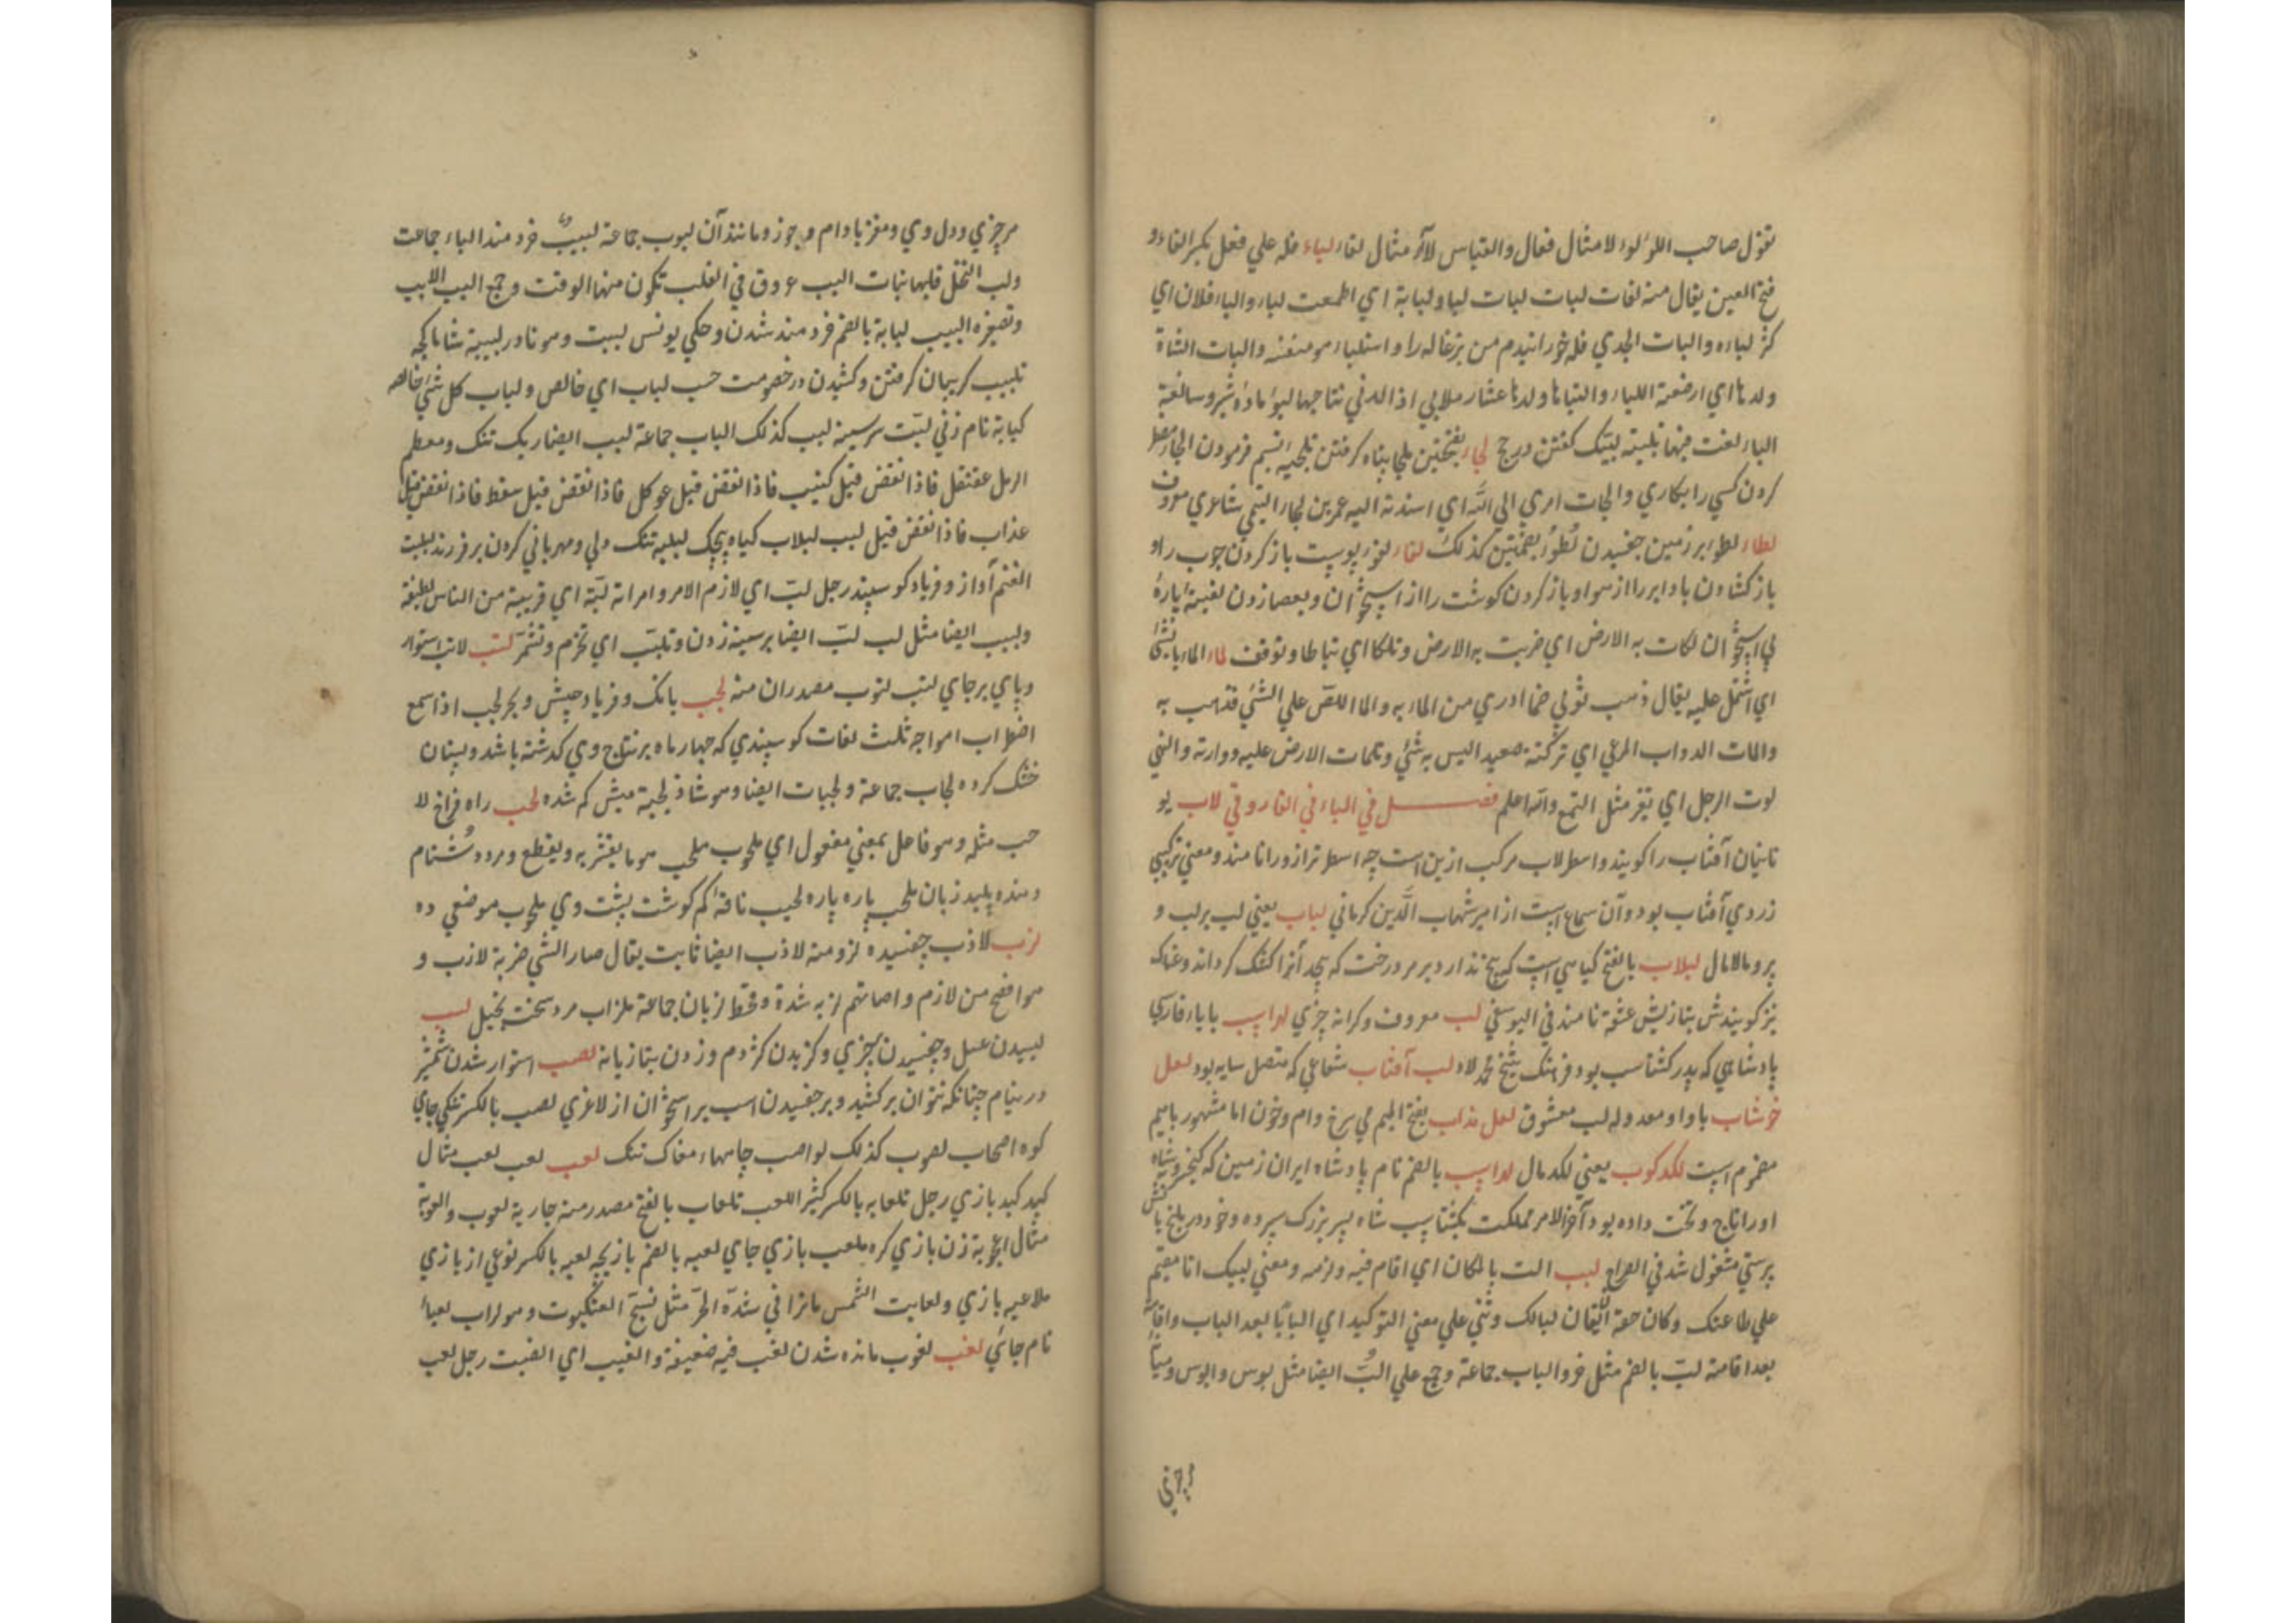 تقول صاحب اللؤلوء لا مثال فعال والقیاس لاآر مثال لغاء لباء فله علي فعل بكسر الفاء و
فتح العین یقال منه لغات لبات لبات لبا و لبابة اي اطعمت لباء والباء فلان اي
کثر لباءه والبات الجدي فله خورانیدم من بزغاله را و استلباء هو منعنه والبات الشاة
ولدها اي ارضعته اللباء والتباها ولدها عشار ملابي اذا الدني نتاجها لبؤ ماده شیر و سالغیة
الباء لغت فیها تلبیته لبیک گفتن در حج لجاء بفتحتین ملجا پناه گرفتن تلجیه بستم فرمودن الجاء مضطر
کردن کسی را بکاري والجات امري الي الله اي اسندته الیه عمر بن لجاء التیمي شاعري معروف
لطاء لطؤ بر زمین چفسیدن لطوء بضمتین کذلک لفاء لغو پوست باز کردن چوب را و
باز کشادن باد ابر را از هوا و باز کردن گوشت را از استخوان و بعصا زدن لفیئة پارۀ
بي استخوان لکات به الارض اي ضربت به الارض و تلکا اي تباطا و توقف لماء الماء بالشئ
اي اشتمل علیه یقال ذهب ثوبي فما ادري من الماء به والما اللص علي الشئ فذهب به
والمات الدواب المرعي اي ترکته صعید الیس به شئ و تلمات الارض علیه و وارته والتي
لوت الرجل اي تغیر مثل التمع والله اعلم فصل في الباء في الفار و قي لاب یو
نانیان آفتاب را گویند و اسطرلاب مرکب ازین است چه اسطر ترازو را نامند و معني ترکیبي
زردي آفتاب بود و آن سماع است از امیر شهاب الدین کرماني لباب یعني لب بر لب و
پر و مالامال لبلاب بالفتح گیاهي است که بیخ ندارد بر هر درخت که پیچد آنرا خشک گرداند و غناک
نیز گویندش بتازیش عشقه نامند في الیوسفي لب معروف و کرانه چیزي لهراسپ بایاء فارسي
پادشاهي که پدر گشتاسب بود فرهنگ شیخ محمد لاد لب آفتاب شعاعي که متصل سایه بود لعل
خوشاب باواو معدوله لب معشوق لعل مذاب بفتح المیم مي سرخ دام و خون اما مشهور بامیم
مضموم است لکدکوب یعني لکدمال لهراسپ بالضم نام پادشاه ایران زمین که کیخسرو شاه
او را تاج و تخت داده بود آخر الامر مملکت بگشتاسپ شاه پسر بزرگ سپرده و خود در بلخ باتش
پرستي مشغول شد في العراح لبب الت بالمکان اي اقام فیه و لزمه و معني لبیک انا مقیم
علي طاعتک وکان حقه ان یقال لبالک وثني علي معني التوکید اي البابا بعد الباب واقامة
بعد اقامة لب بالضم مثل خر و الباب جماعة و جمع علي الب ایضا مثل بوس وابوس و میانۀ
هر چیزي
هر چیزي و دل وي و مغز بادام و جوز و مانند آن لبوب جماعة لبیب خردمند الباء جماعت
و لب النخل قلبها بنات البب عروق في القلب تکون منها الرقت و جمع الب الالبیب
و تصغیره البیب لبابة بالضم خردمند شدن و حکي یونس لببت و هو نادر لبیبه شاماکچه
تلبیب گریبان گرفتن و کشیدن در خصومت حسب لباب اي خالص و لباب کل شئ خالصه
کبابة نام زني لبت سر سینه لبب کذلک الباب جماعة لبب ایضا ریک تنک و معظم
الرمل عقنقل فاذا نقض قیل کثیب فاذا نقض قیل عوکل فاذا نقض قیل سقط فاذا نقض قیل
عذاب فاذا نقض قیل لبب لبلاب گیاه پیچک لبلبه تنک دلي و مهرباني کردن بر فرزند لبلبت
الغنم آواز و فریاد گوسپند رجل لب اي لازم الامر و امراة لبة اي قریبة من الناس لطیفة
و لبیب ایضا مثل لب لب ایضا بر سینه زدن و تلبب اي تحزم و تشمر لتب لاتب استوار
و پاي بر جاي لتب لتوب مصدران منه لجب بانک و فریاد جیش و بحر لجب اذا سمع
اضطراب امواجه ثلث لغات گوسپندي که چهار ماه بر نتاج وي گذشته باشد و پستان
خشک کرده لجاب جماعة و لجبات ایضا و هو شاذ لجبة میش کم شده لحب راه فراخ لا
حب مثله و هو فاعل بمعني مفعول اي ملحوب ملحب هو ما یقشر به و یقطع و مرد دشنام
دهنده پلید زبان ملحب پاره پاره لحیب ناقۀ کم گوشت پشت وي ملحوب موضعي ده
لزب لازب چفسیده لزو منه لازب ایضا ثابت یقال صار الشئ ضربة لازب و
هو افصح من لازم و اصابتهم لزبه شدة و قحط لزبان جماعة ملزاب مرد سخت بخیل لسب
لیسیدن عسل و چفسیدن بچیزي و گزیدن کژدم و زدن بتازیانه لصب استوار شدن شمشیر
در نیام چنانکه نتوان برکشید و بر چفسیدن اسب بر استخوان از لاغري لصب بالکسر تنگي جاي
کوه اصحاب لصوب کذلک لواصب چاهها مغاک تنک لعب لعب لعب مثال
کبد کبد بازي رجل تلعابه بالکسر کثیر اللعب تلعاب بالفتح مصدر منه جاریة لعوب والعوبة
مثال اعجوبة زن بازي کره ملعب بازي جاي لعبه بالضم بازیچه لعبه بالکسر نوعي از بازي
ملاعبه بازي و لعابت الشمس ماترا في شدة الحر مثل نسج العنکبوت و هو لراب لعباء
نام جائي لغب لغوب مانده شدن لغب فیه ضعیفة والغیب اي الضبت رجل لعب